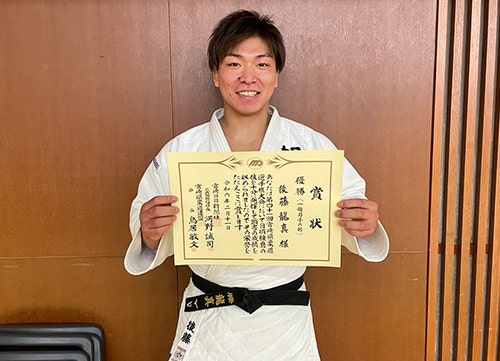 賞状
優勝(一般男子の部)
後藤龍真様
あなたは第四十一回宮崎県柔道
選手権大会において日頃練磨の
技を十分発揮して頭書の成績を
収められましたのでその栄誉を
たたえここに賞します
令和六年二月十一日
宮崎日日新聞社
河野誠司
宮崎県柔道連盟
会長 鳥居敏文
後藤